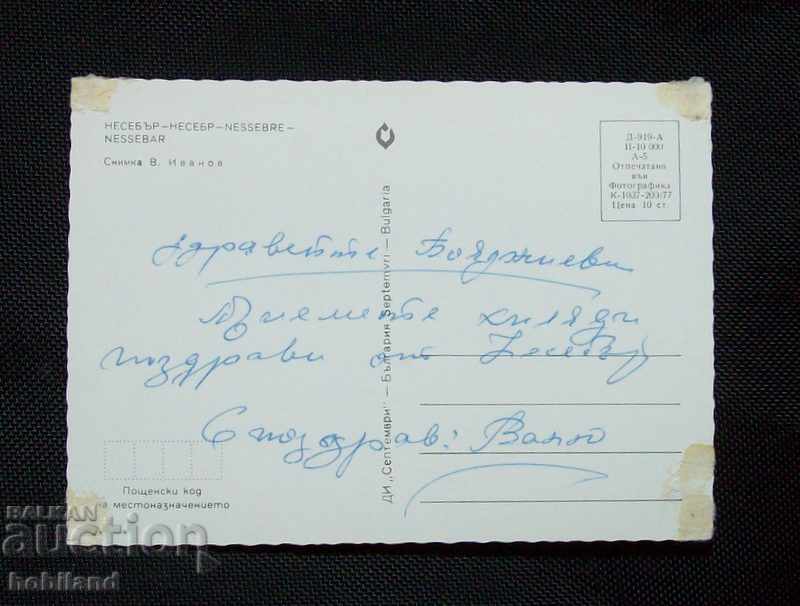 НЕСЕБЪР—НЕСЕБР—NESSEBRE—
NESSEBAR
Снимка В. Иванов
Д-919-А
П-10 000
А-5
Отпечатано
във
Фотографика
К-1037-203/77
Цена 10 ст.
Здравейте Бояджиеви
Приемете хиляди
поздрави от Несебър
С поздрав: Ваньо
ДИ „Септември" — България Septemvri — Bulgaria
Пощенски код
на местоназначението
BALKAN
auction
hobiland